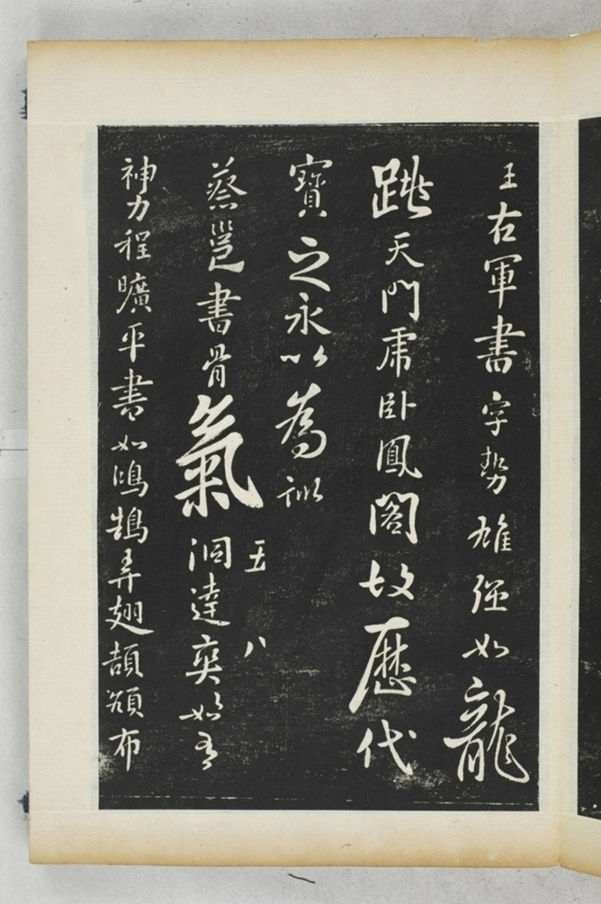 王右軍書字勢雄强如龍
跳天門虎卧鳳閣故歷代
寶之永以為訓
五 八
蔡邕書骨氣洞達爽如有
神力程曠平書如鴻鵠弄翅頡頏布